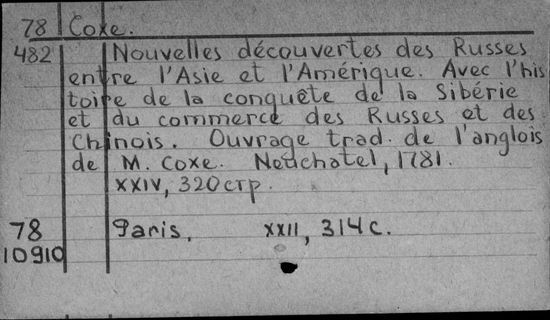 78 Coxe.
482 Nouvelles découvertes des Russes
entre l'Asie et l'Amérique. Avec l'his
toire de la conquête de la Sibérie
et du commerce des Russes et des
Chinois. Ouvrage trad. de l'anglois
de M. Coxe. Neuchatel, 1781.
XXIV, 320 стр.
78 Paris, XXII, 314 с.
10910